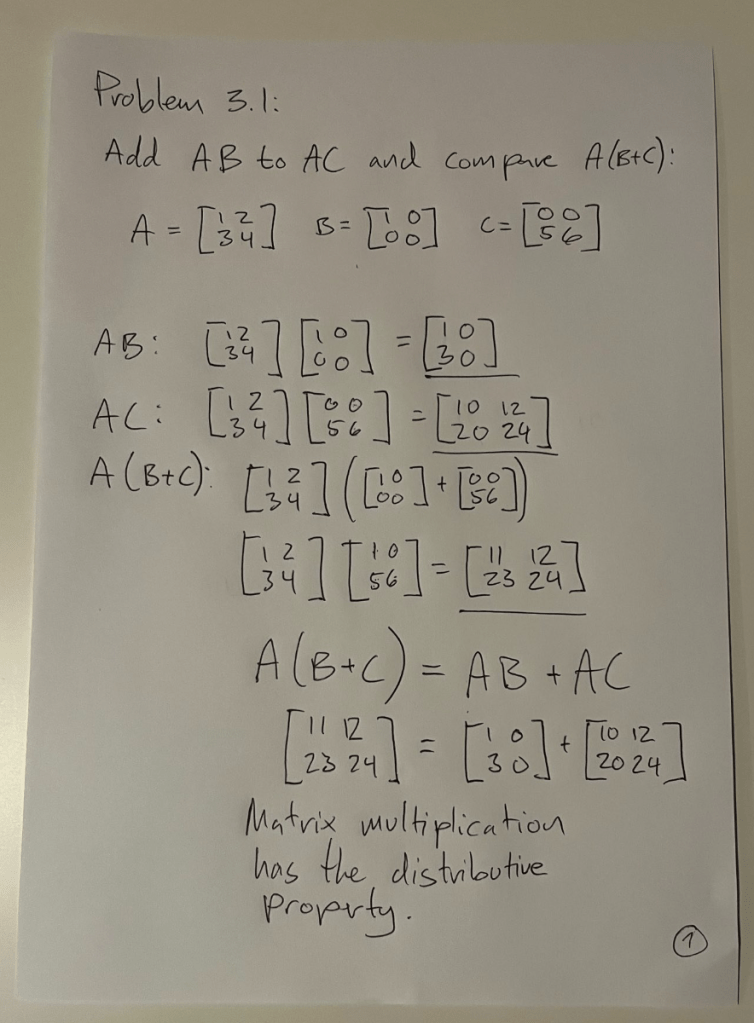 Problem 3.1:
Add AB to AC and compare A(B+C):
A = [1 2; 3 4] B = [1 0; 0 0] C = [0 0; 5 6]
AB: [1 2; 3 4] [1 0; 0 0] = [1 0; 3 0]
AC: [1 2; 3 4] [0 0; 5 6] = [10 12; 20 24]
A(B+C): [1 2; 3 4] ([1 0; 0 0] + [0 0; 5 6])
[1 2; 3 4] [1 0; 5 6] = [11 12; 23 24]
A(B+C) = AB + AC
[11 12; 23 24] = [1 0; 3 0] + [10 12; 20 24]
Matrix multiplication
has the distributive
property.
1